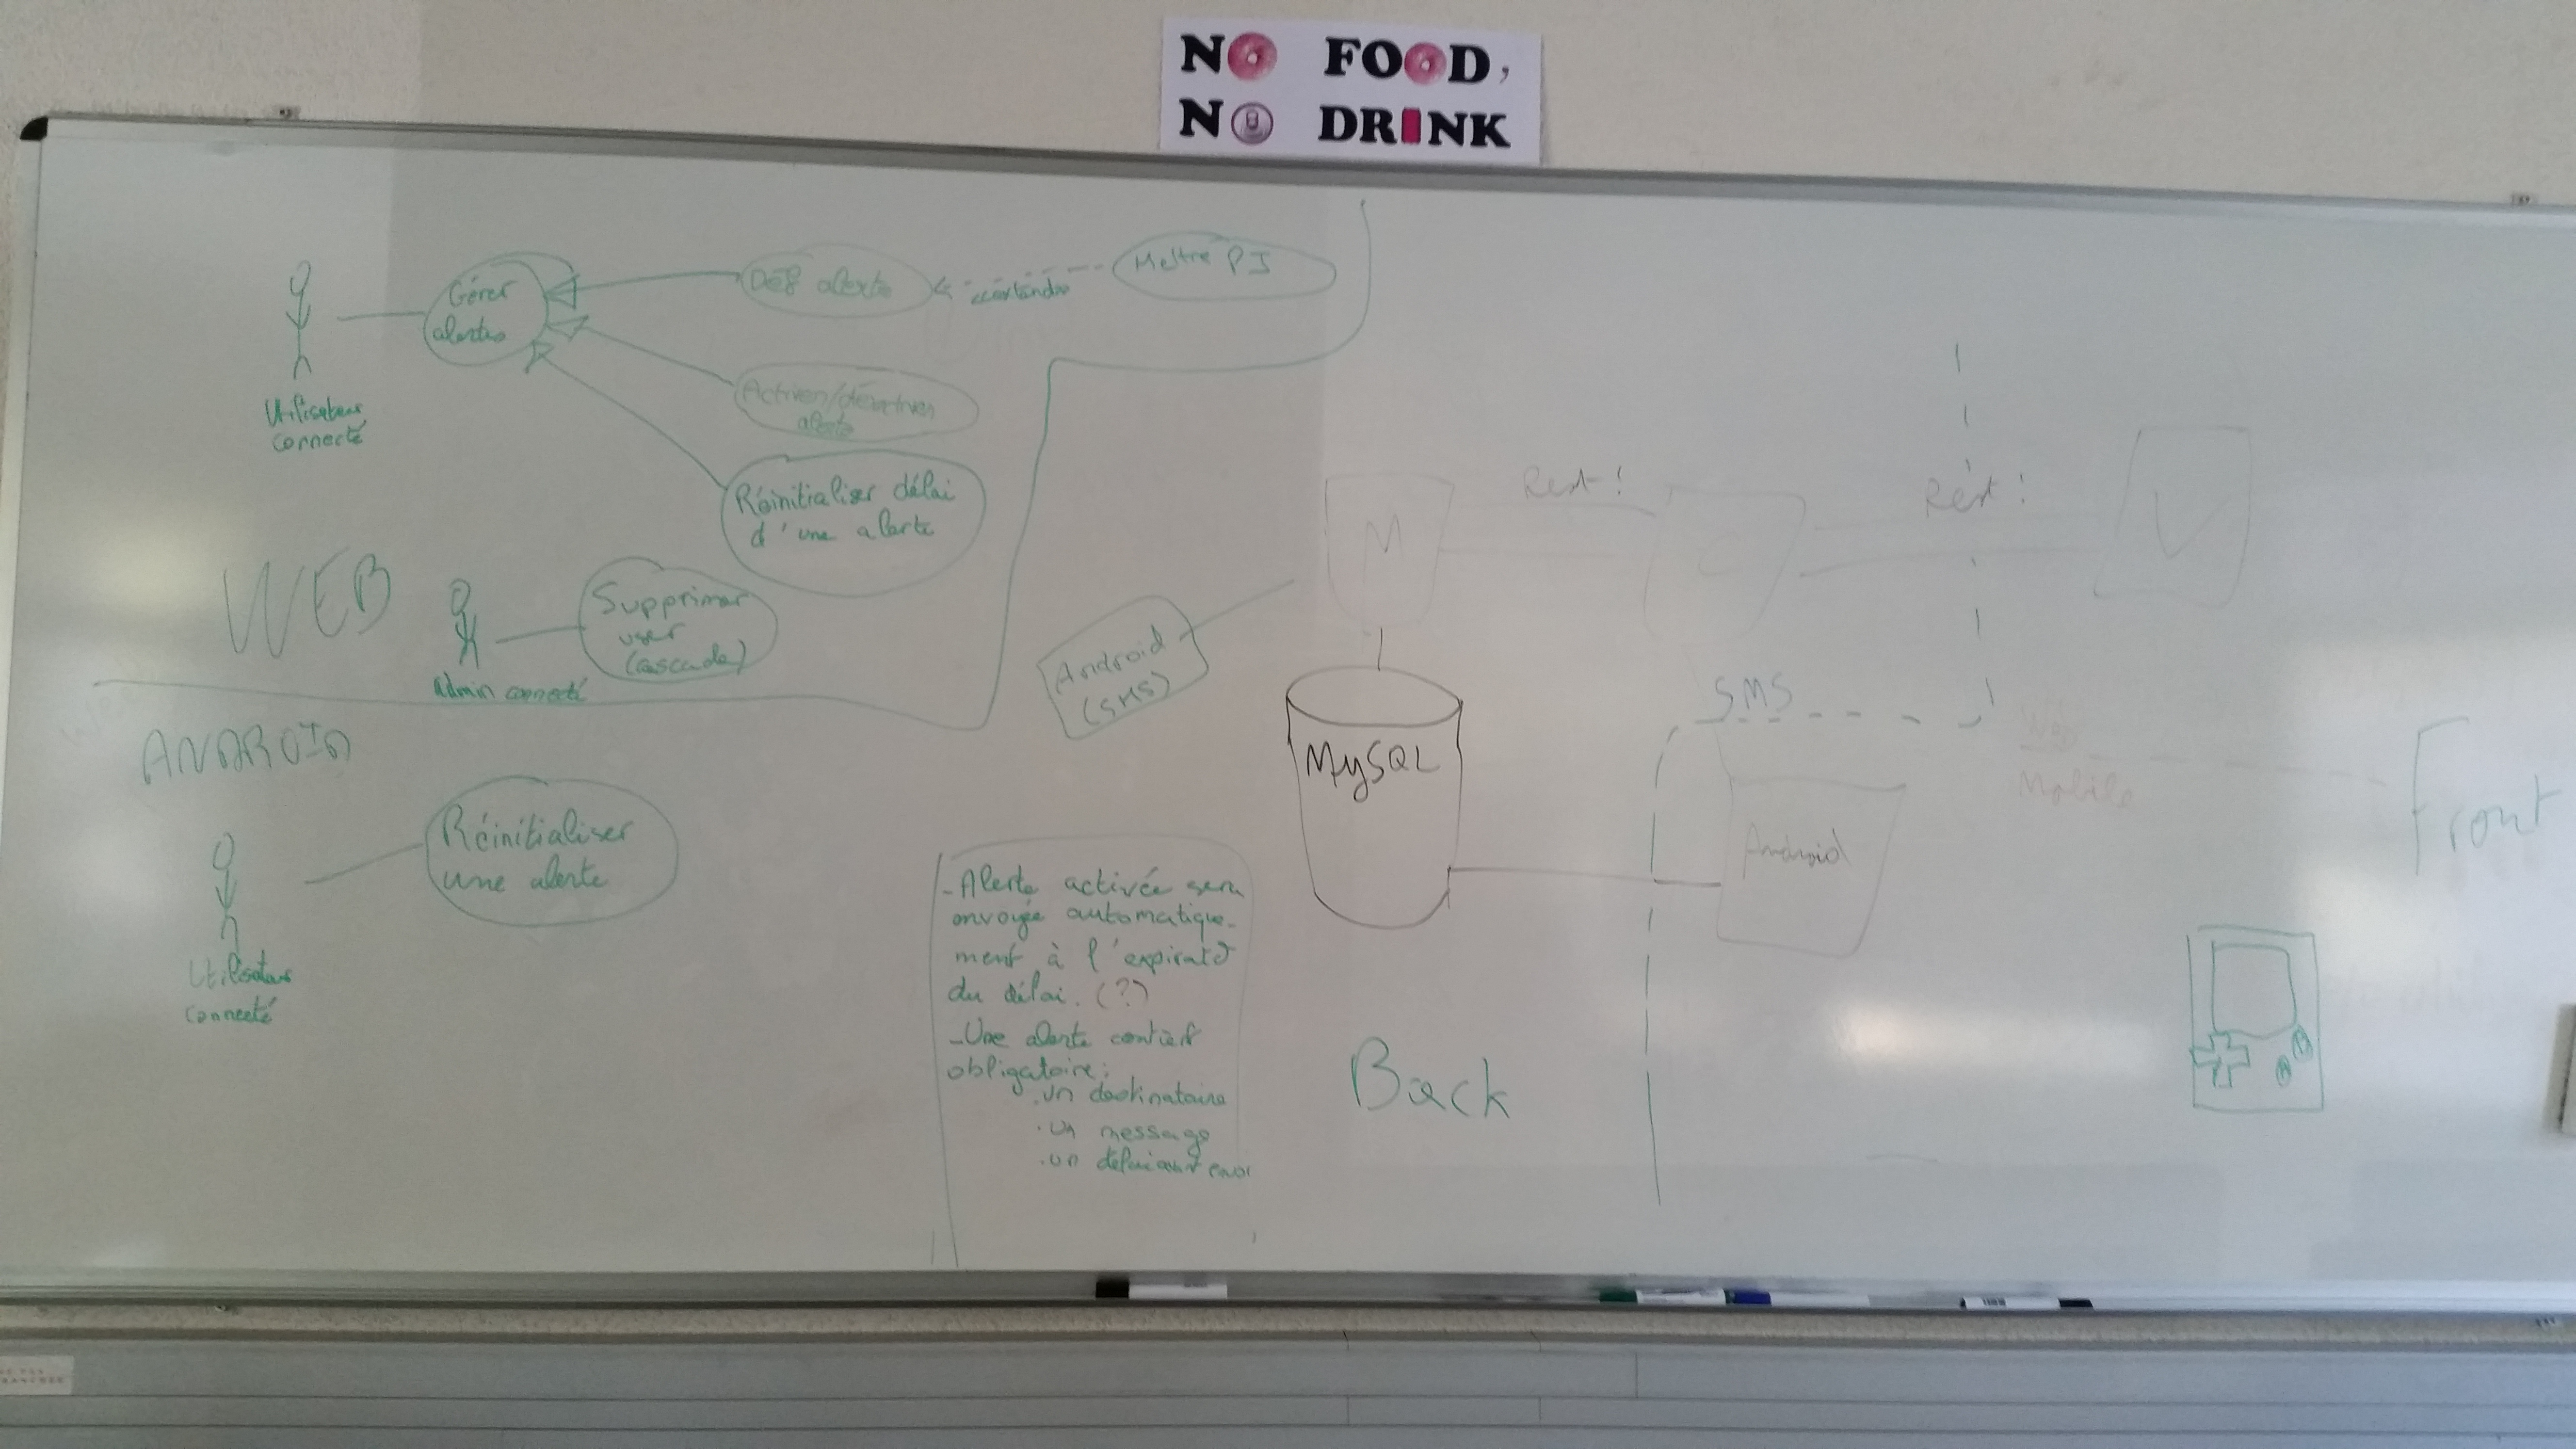 NO FOOD,
NO DRINK
Gérer
alertes
Déf alerte
Mettre PJ
Utilisateur
connecté
Activer/désactiver
alerte
Réinitialiser délai
d'une alerte
WEB
Supprimer
user
(cascade)
Admin connecté
ANDROID
Réinitialiser
une alerte
Utilisateur
connecté
Android
(SMS)
M
Rest !
C
Rest !
V
MySQL
SMS
Web
Mobile
Android
Front
Back
- Alerte activée sera
envoyée automatique-
ment à l'expirat°
du délai. (?)
- Une alerte contient
obligatoire :
. un destinataire
. un message
. un délai avant envoi